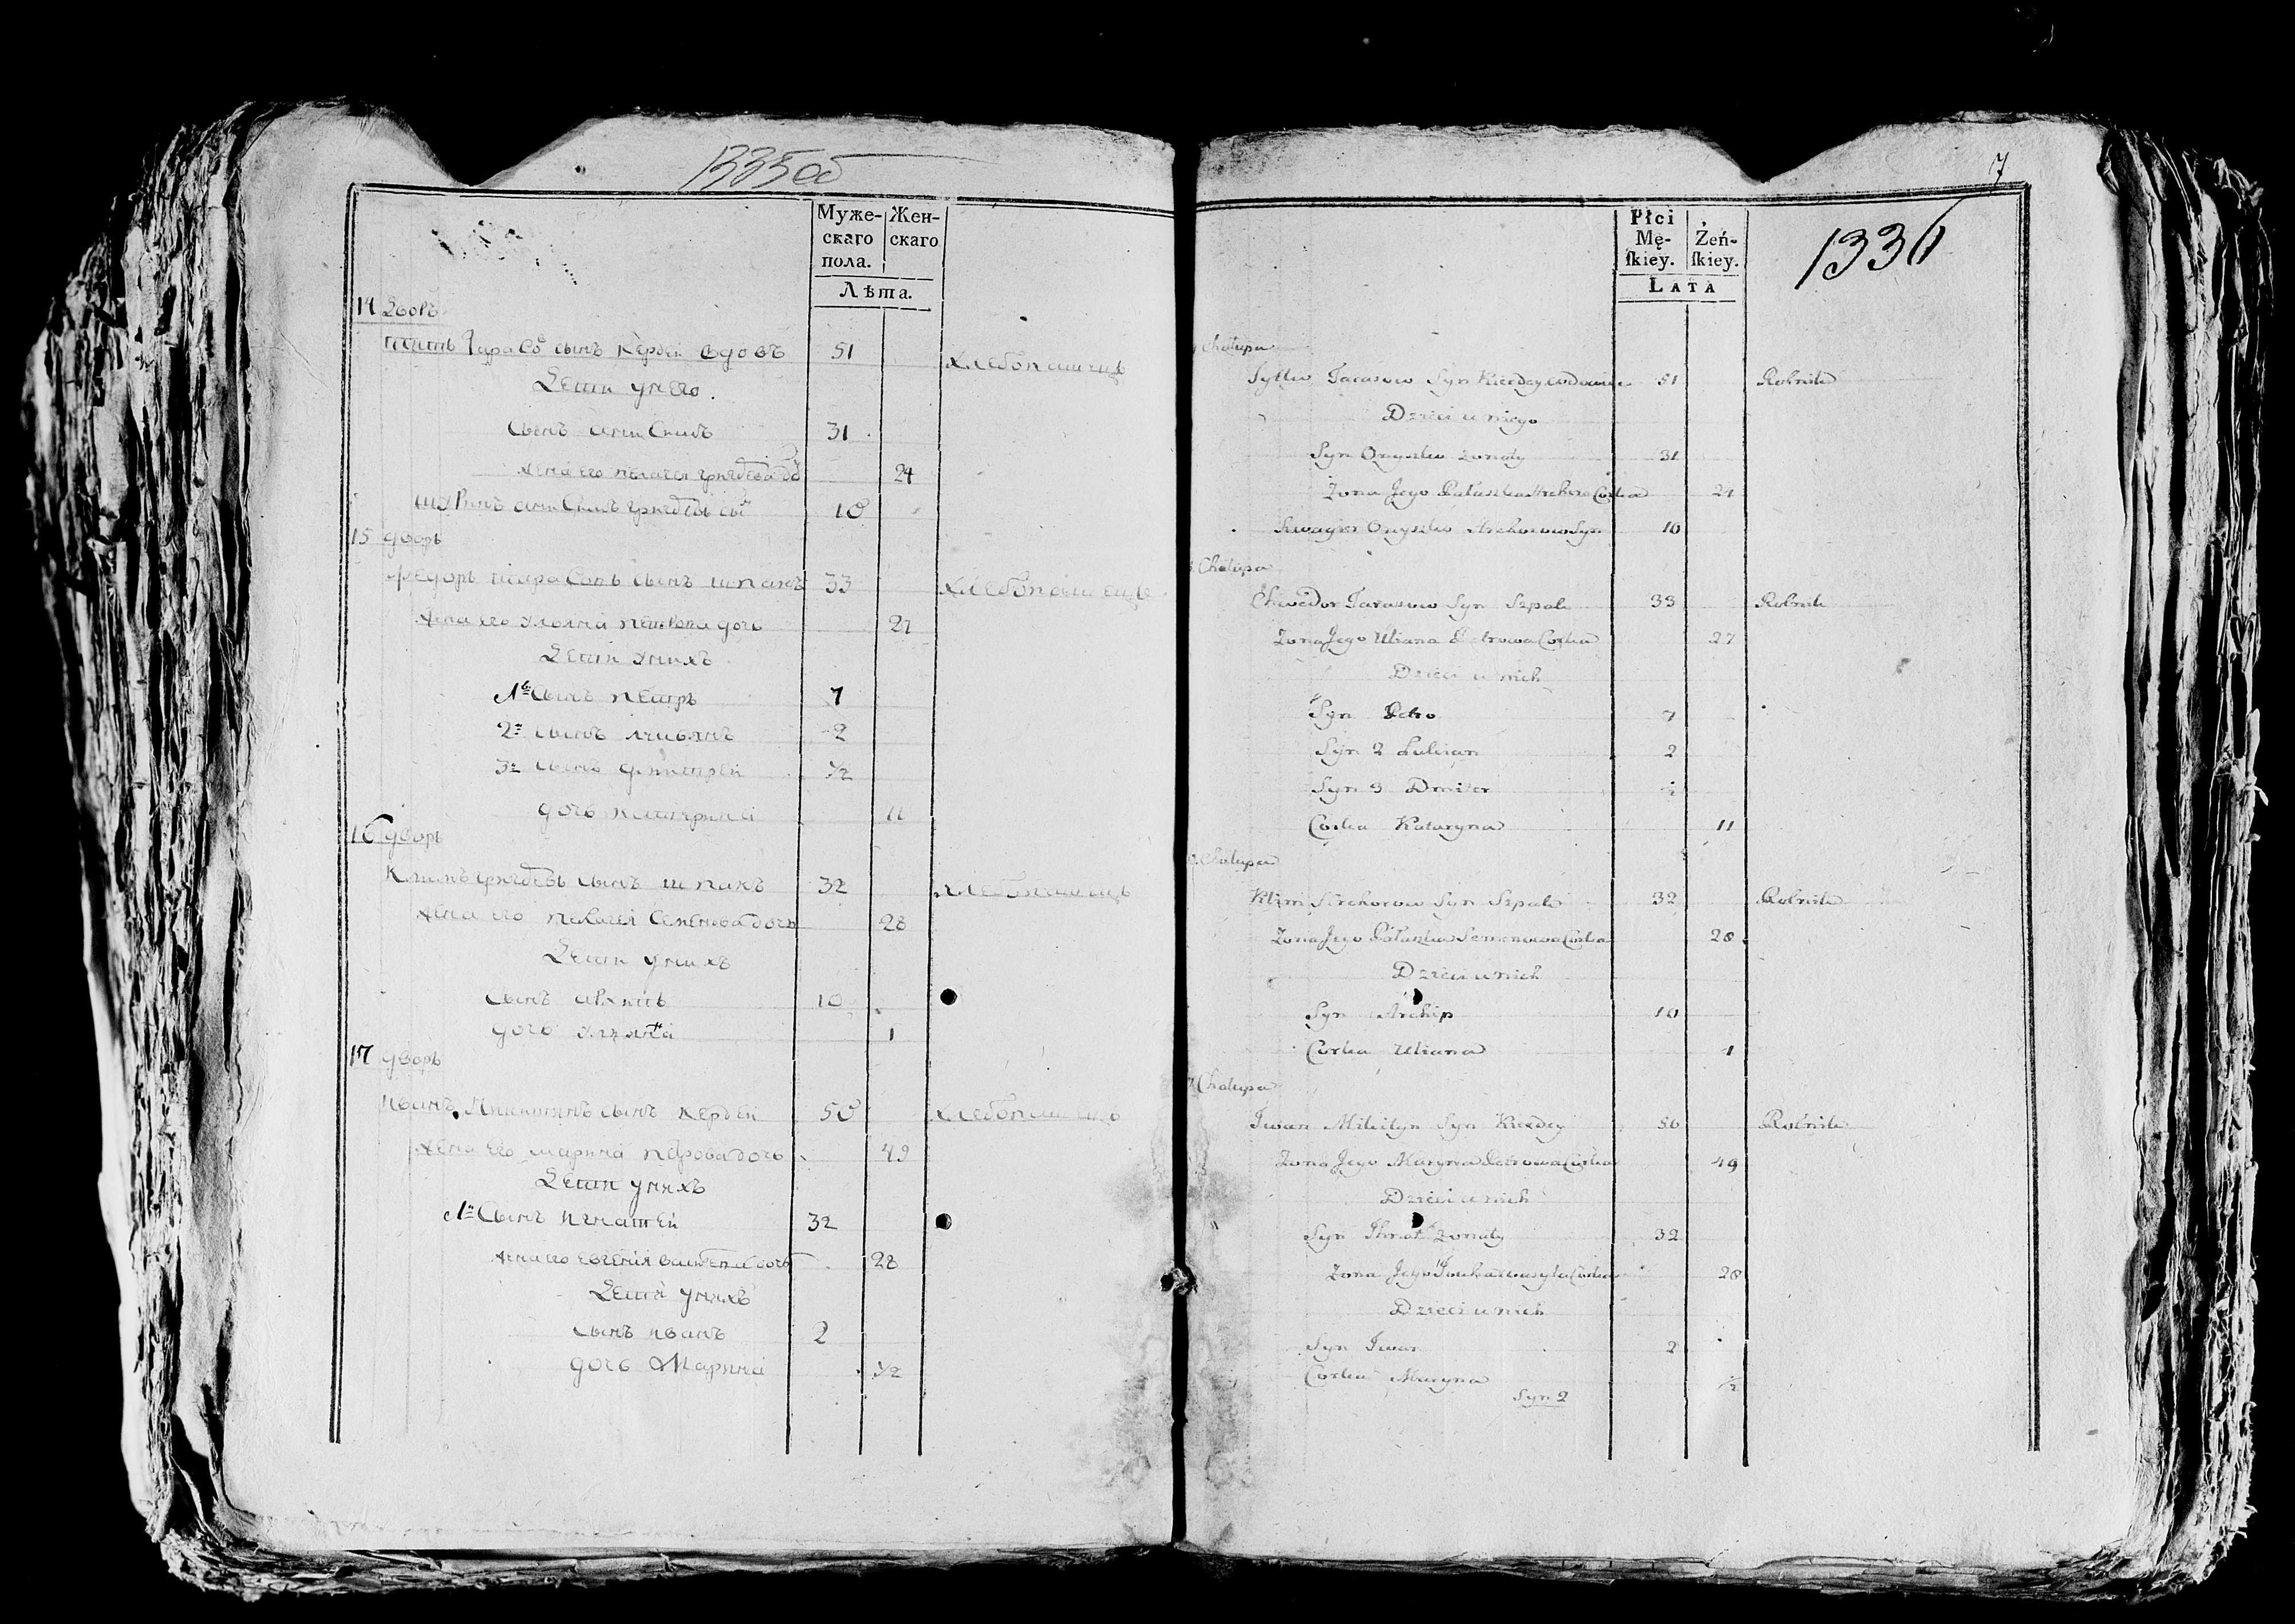 1335 об
Муже-
скаго
пола.
Жен-
скаго
Лѣта.
14 Дворъ
Тарасо сынъ Кердей вдовъ 51 хлебопашецъ
Дети у него
Сынъ 31
жена его Пелагея 24
Шуринъ 10
15 дворъ
Федоръ Тарасовъ сынъ шпакъ 33 хлебопашецъ
жена его Ульяна Петрова дочь 27
Дети у нихъ
1й Сынъ Петръ 7
2й сынъ 2
3й сынъ Дмитрей 1/2
дочь Катерина 11
16 дворъ
Климъ сынъ шпакъ 32 хлебопашецъ
жена его Пелагея Семенова дочь 28
Дети у нихъ
Сынъ Архипъ 10
дочь Ульяна 1
17 дворъ
Иванъ Микитинъ сынъ Кердей 50 хлебопашецъ
жена его Марина дочь 49
Дети у нихъ
1й Сынъ Игнатей 32
жена его Евгения дочь 28
Дети у нихъ
Сынъ Иванъ 2
дочь Марина 1/2
7
Płci
Mę-
ſkiey.
Żeń-
ſkiey.
LATA
1336
Chałupa
Tarasow Syn Kierdey wdowiec 51 Rolnik
Dzieci u niego
Syn Onyszko żonaty 31
Żona Jego Pałaszka Corka 24
Szwagier Onyszko Syn 10
Chałupa
Chwedor Tarasow Syn Szpak 33 Rolnik
Żona Jego Uliana Petrowa Corka 27
Dzieci u nich
Syn Petro 7
Syn 2 Lukian 2
Syn 3 Dmiter ½
Corka Kataryna 11
Chałupa
Klim Syn Szpak 32 Rolnik
Żona Jego Pałaszka Semenowa Corka 28
Dzieci u nich
Syn Archip 10
Corka Uliana 1
Chałupa
Iwan Mikityn Syn Kierdey 50 Rolnik
Żona Jego Maryna Petrowa Corka 49
Dzieci u nich
Syn Ihnat żonaty 32
Żona Jego Corka 28
Dzieci u nich
Syn Iwan 2
Corka Maryna 1/2
Syn 2